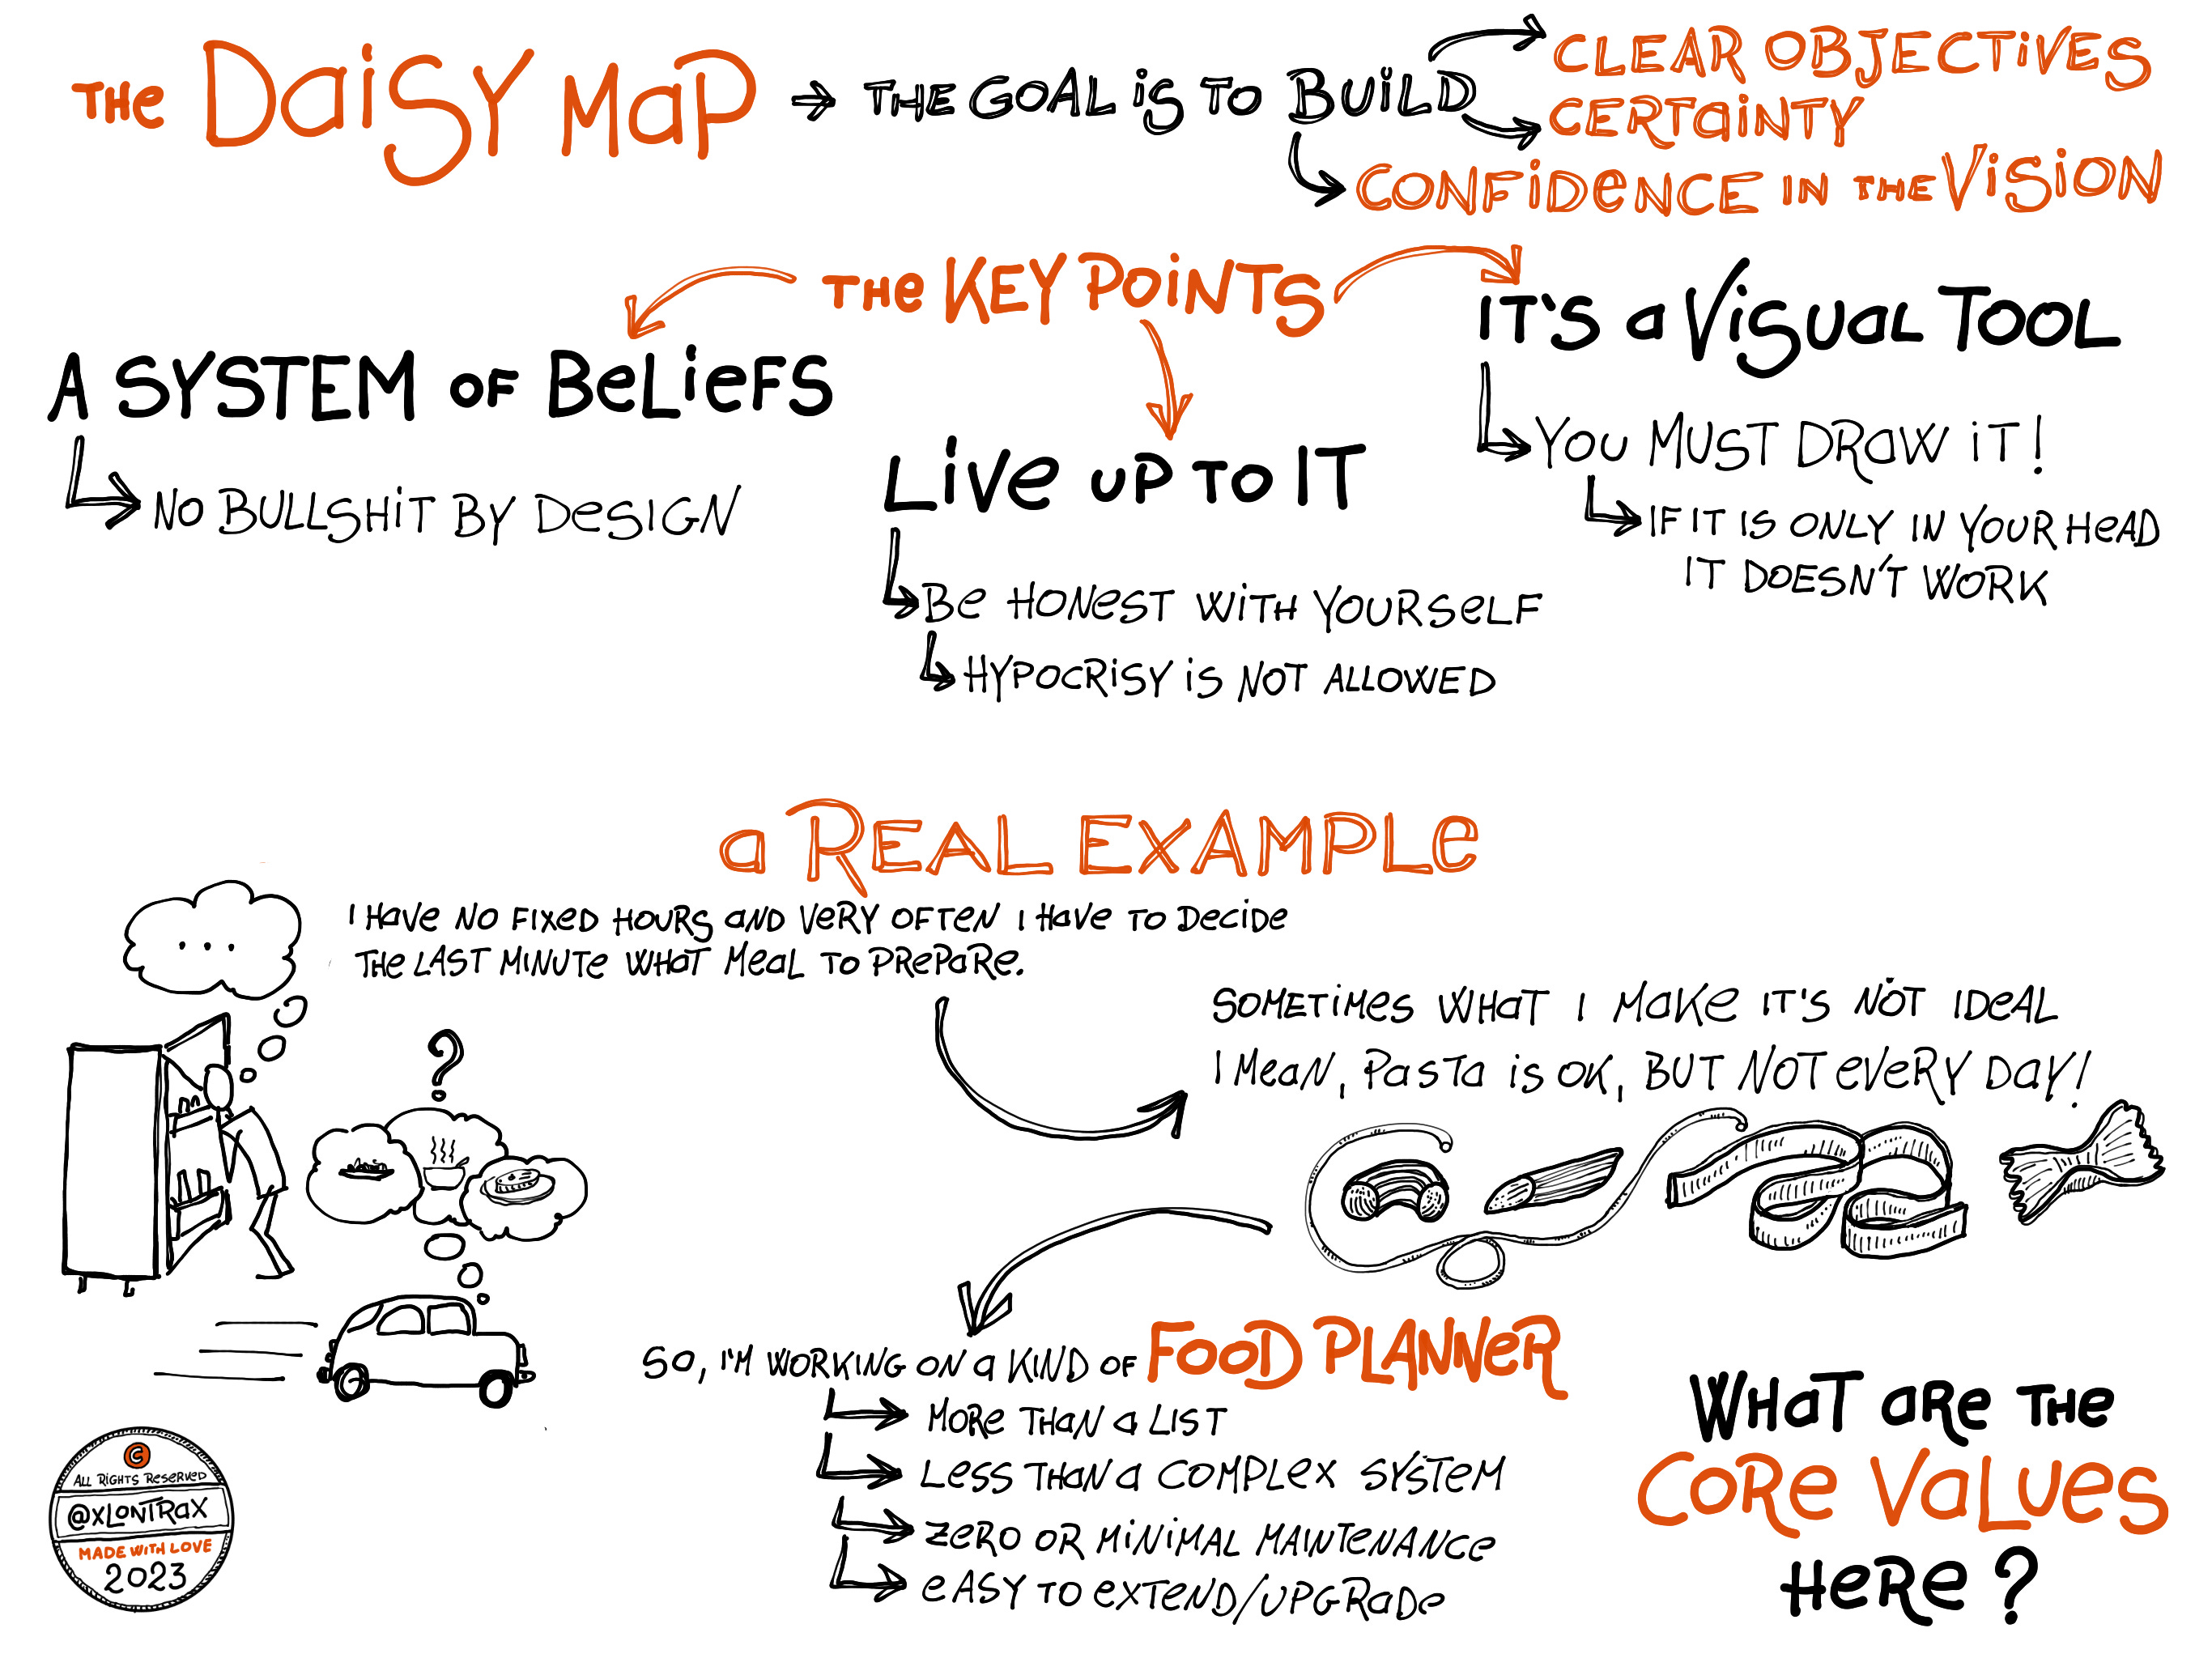 THE DAISY MAP → THE GOAL IS TO BUILD
CLEAR OBJECTIVES
CERTAINTY
CONFIDENCE IN THE VISION
THE KEY POINTS
A SYSTEM OF BELIEFS
NO BULLSHIT BY DESIGN
LIVE UP TO IT
BE HONEST WITH YOURSELF
HYPOCRISY IS NOT ALLOWED
IT'S A VISUAL TOOL
YOU MUST DRAW IT!
IF IT IS ONLY IN YOUR HEAD
IT DOESN'T WORK
A REAL EXAMPLE
...
I HAVE NO FIXED HOURS AND VERY OFTEN I HAVE TO DECIDE
THE LAST MINUTE WHAT MEAL TO PREPARE.
?
SOMETIMES WHAT I MAKE IT'S NOT IDEAL
I MEAN, PASTA IS OK, BUT NOT EVERY DAY!
SO, I'M WORKING ON A KIND OF FOOD PLANNER
MORE THAN A LIST
LESS THAN A COMPLEX SYSTEM
ZERO OR MINIMAL MAINTENANCE
EASY TO EXTEND/UPGRADE
WHAT ARE THE
CORE VALUES
HERE?
©
ALL RIGHTS RESERVED
@XLONTRAX
MADE WITH LOVE
2023